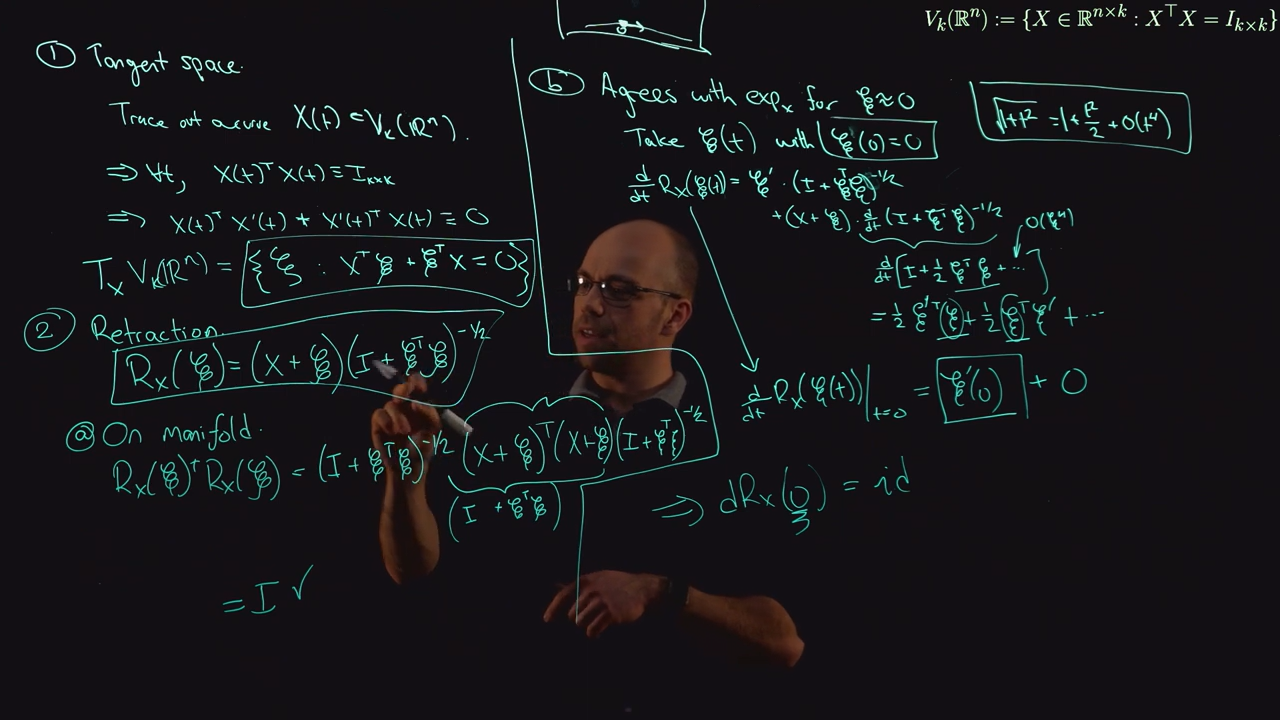 V_k(ℝⁿ) := {X ∈ ℝ^{n×k} : X^⊤X = I_{k×k}}
① Tangent space.
Trace out a curve X(t) ⊂ V_k(ℝⁿ).
⇒ ∀t, X(t)^T X(t) ≡ I_{k×k}
⇒ X(t)^T X'(t) + X'(t)^T X(t) ≡ 0
T_x V_k(ℝⁿ) = {ξ : X^T ξ + ξ^T X = 0}
② Retraction.
R_x(ξ) = (X + ξ)(I + ξ^T ξ)^{-1/2}
ⓐ On manifold.
R_x(ξ)^T R_x(ξ) = (I + ξ^T ξ)^{-1/2} (X + ξ)^T (X + ξ)(I + ξ^T ξ)^{-1/2}
(I + ξ^T ξ)
= I ✓
ⓑ Agrees with exp_x for ξ ≈ 0
Take ξ(t) with ξ(0) = 0
√(1+t²) = 1 + t²/2 + O(t⁴)
d/dt R_x(ξ(t)) = ξ' · (I + ξ^T ξ)^{-1/2}
+ (X + ξ) · d/dt (I + ξ^T ξ)^{-1/2}
O(ξ⁴)
d/dt [I + 1/2 ξ^T ξ + ···]
= 1/2 ξ'^T (ξ) + 1/2 (ξ)^T ξ' + ···
d/dt R_x(ξ(t))|_{t=0} = ξ'(0) + 0
⇒ dR_x(0) = id